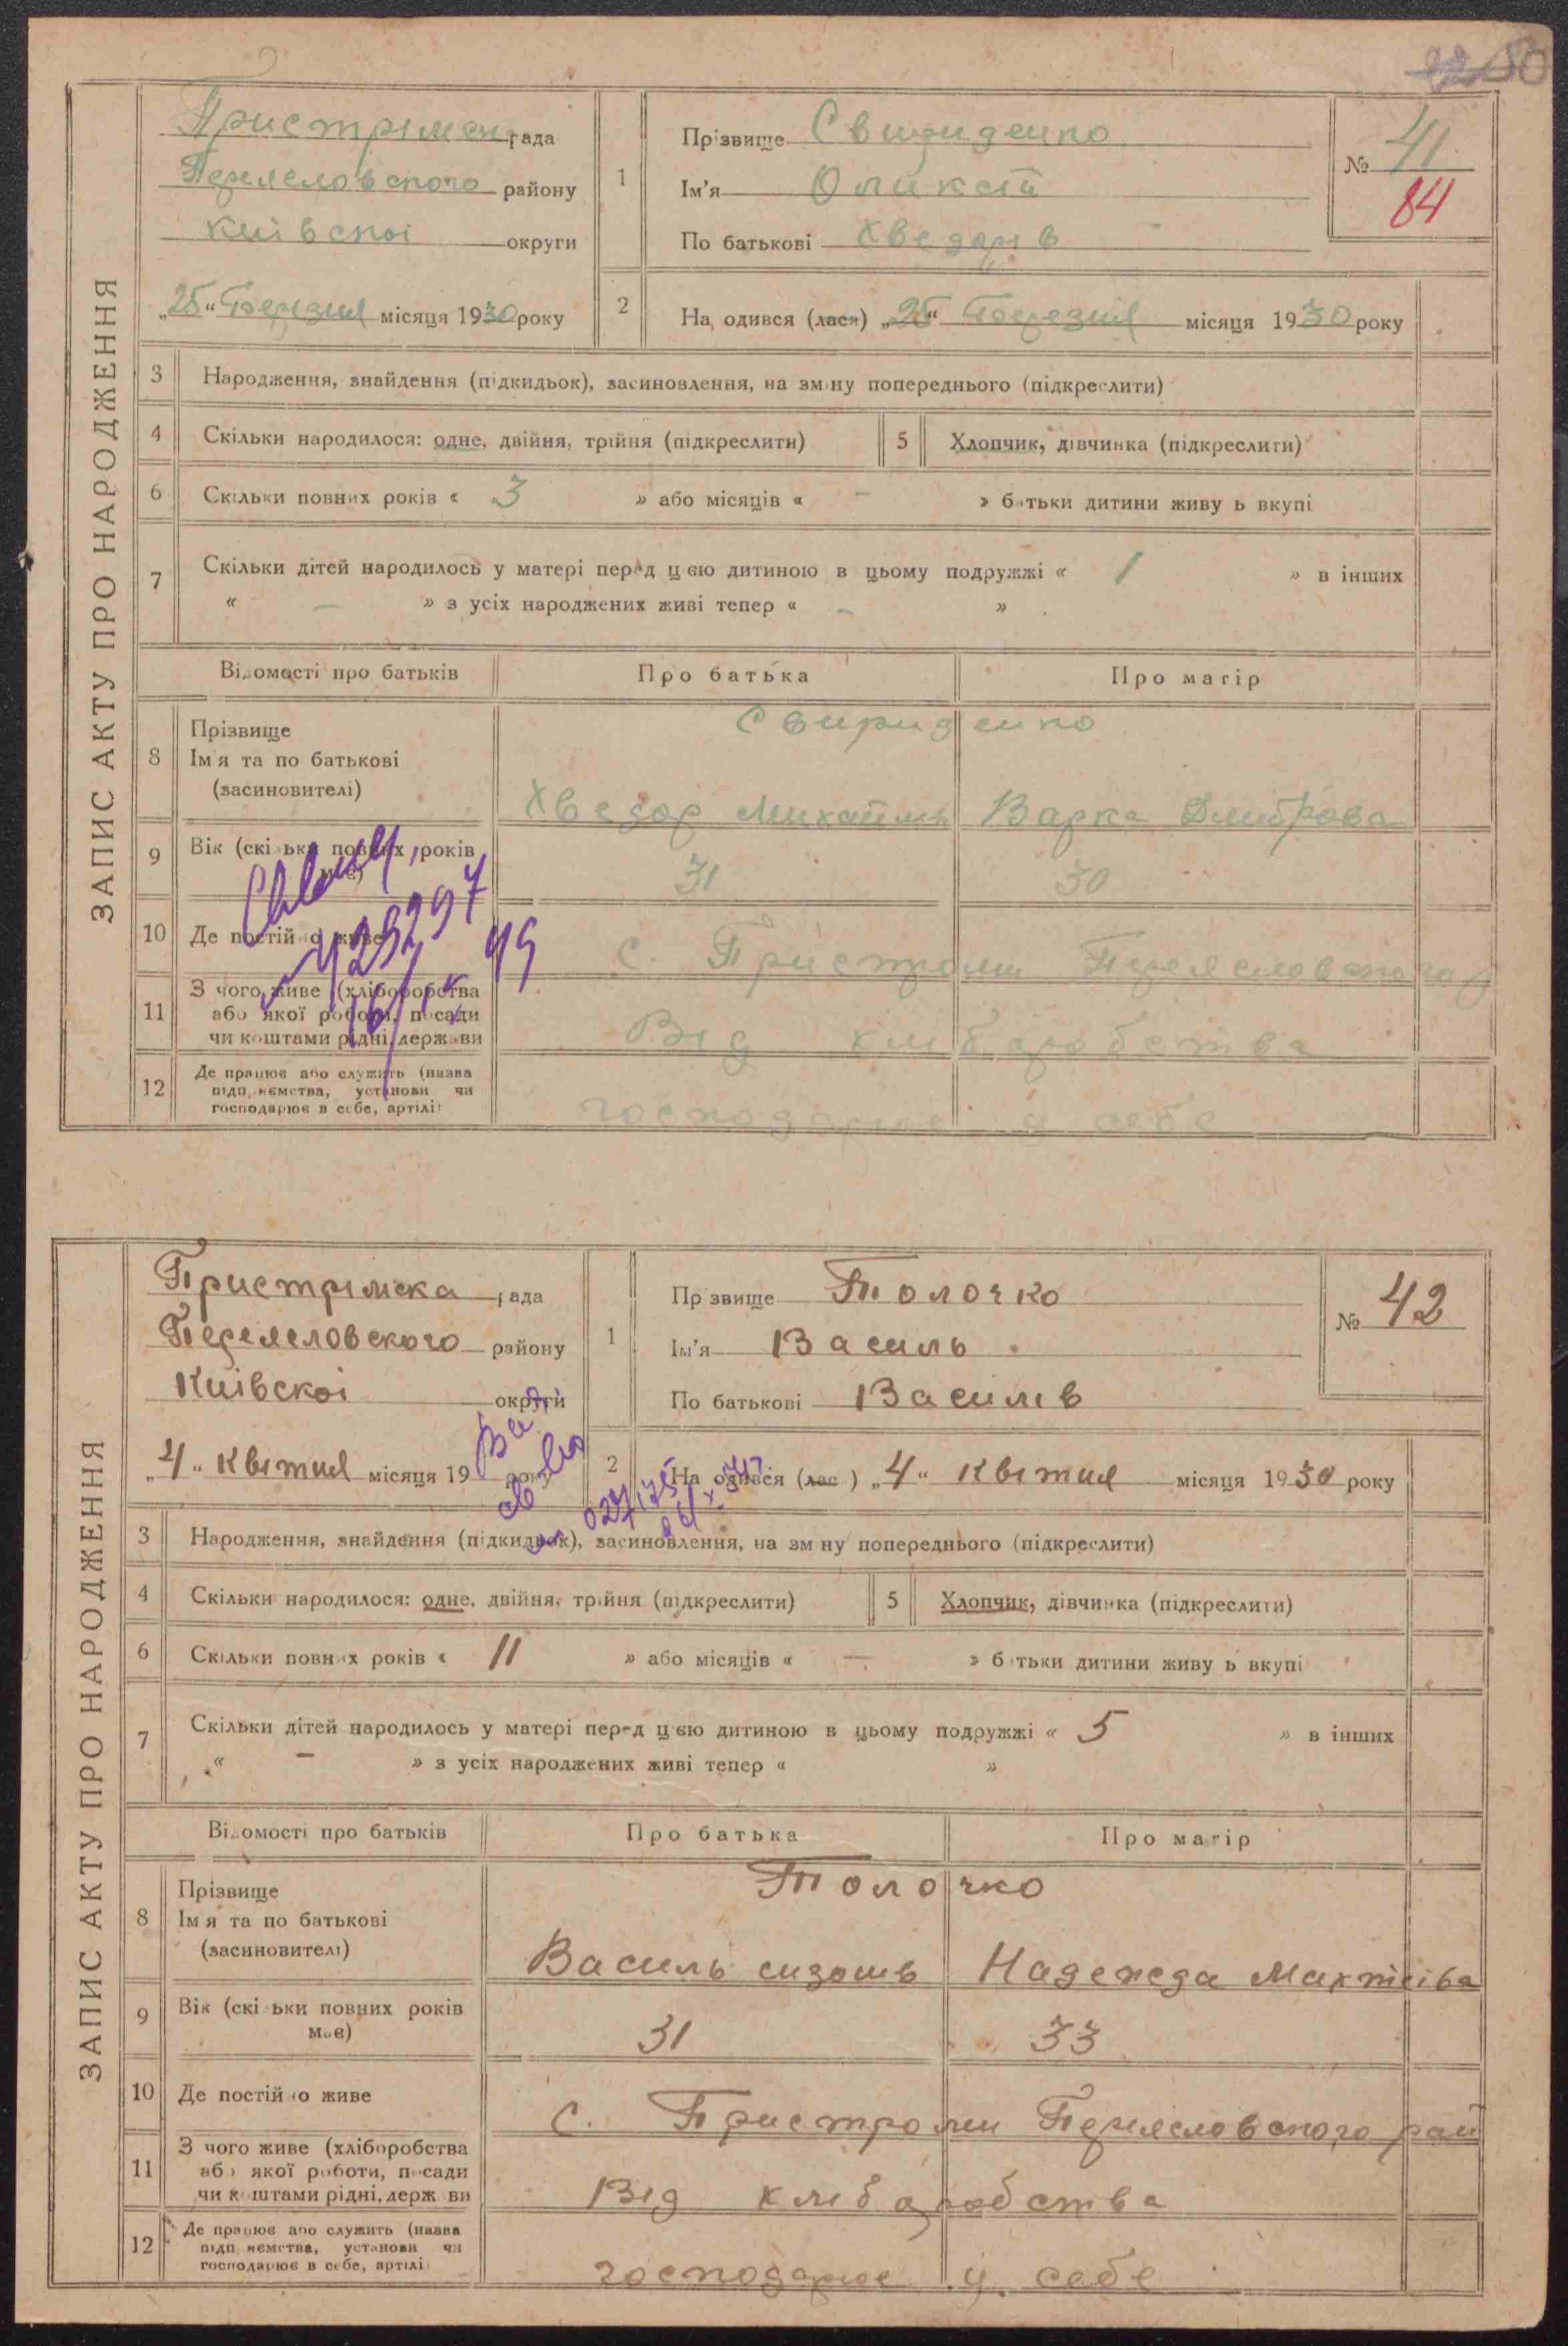 50
ЗАПИС АКТУ ПРО НАРОДЖЕННЯ
Пристримск рада
Переясловского району
Київскоі округи
„25“ Березня місяця 1930 року
1
Прізвище Свириденко
Ім'я Оликсій
По батькові Хведорів
№ 41
84
2
На одився (лася) „25“ Березня місяця 1930 року
3 Народження, знайдення (підкидьок), засиновлення, на зміну попереднього (підкреслити)
4 Скільки народилося: одне, двійня, трійня (підкреслити)
5 Хлопчик, дівчинка (підкреслити)
6 Скільки повних років « 3 » або місяців « – » батьки дитини живу ь вкупі
7 Скільки дітей народилось у матері перед цією дитиною в цьому подружжі « 1 » в інших
« – » з усіх народжених живі тепер « – »
Відомості про батьків Про батька Про матір
8 Прізвище
Ім'я та по батькові
(засиновителі)
Свириденко
Хведор Михайлів Варка Дмитрова
9 Вік (скі ьки повних років
має)
31 30
10 Де постійно живе
С. Пристроми Переясловского р
125297
16/IX 49
11 З чого живе (хліборобства
або якої роботи, посади
чи коштами рідні, держави
Від хліборобства
12 Де працює або служить (назва
підприємства, установи чи
господарює в себе, артілі)
господарює у себе
ЗАПИС АКТУ ПРО НАРОДЖЕННЯ
Пристрімска рада
Переясловского району
Київскоі округи
„4“ Квітня місяця 19 року
1
Прізвище Толочко
Ім'я Василь
По батькові Василів
№ 42
2
На одився (лас ) „4“ Квітня місяця 1930 року
3 Народження, знайдення (підкидьок), засиновлення, на зміну попереднього (підкреслити)
4 Скільки народилося: одне, двійня, трійня (підкреслити)
5 Хлопчик, дівчинка (підкреслити)
6 Скільки повних років « 11 » або місяців « – » батьки дитини живу ь вкупі
7 Скільки дітей народилось у матері перед цією дитиною в цьому подружжі « 5 » в інших
« – » з усіх народжених живі тепер « »
Відомості про батьків Про батька Про матір
8 Прізвище
Ім'я та по батькові
(засиновителі)
Толочко
Василь Надежда
9 Вік (скі ьки повних років
має)
31 33
10 Де постійно живе
С. Пристроми Переясловского рай
11 З чого живе (хліборобства
або якої роботи, посади
чи коштами рідні, держ ви
Від хліборобства
12 Де працює або служить (назва
підприємства, установи чи
господарює в себе, артілі
господарює у себе